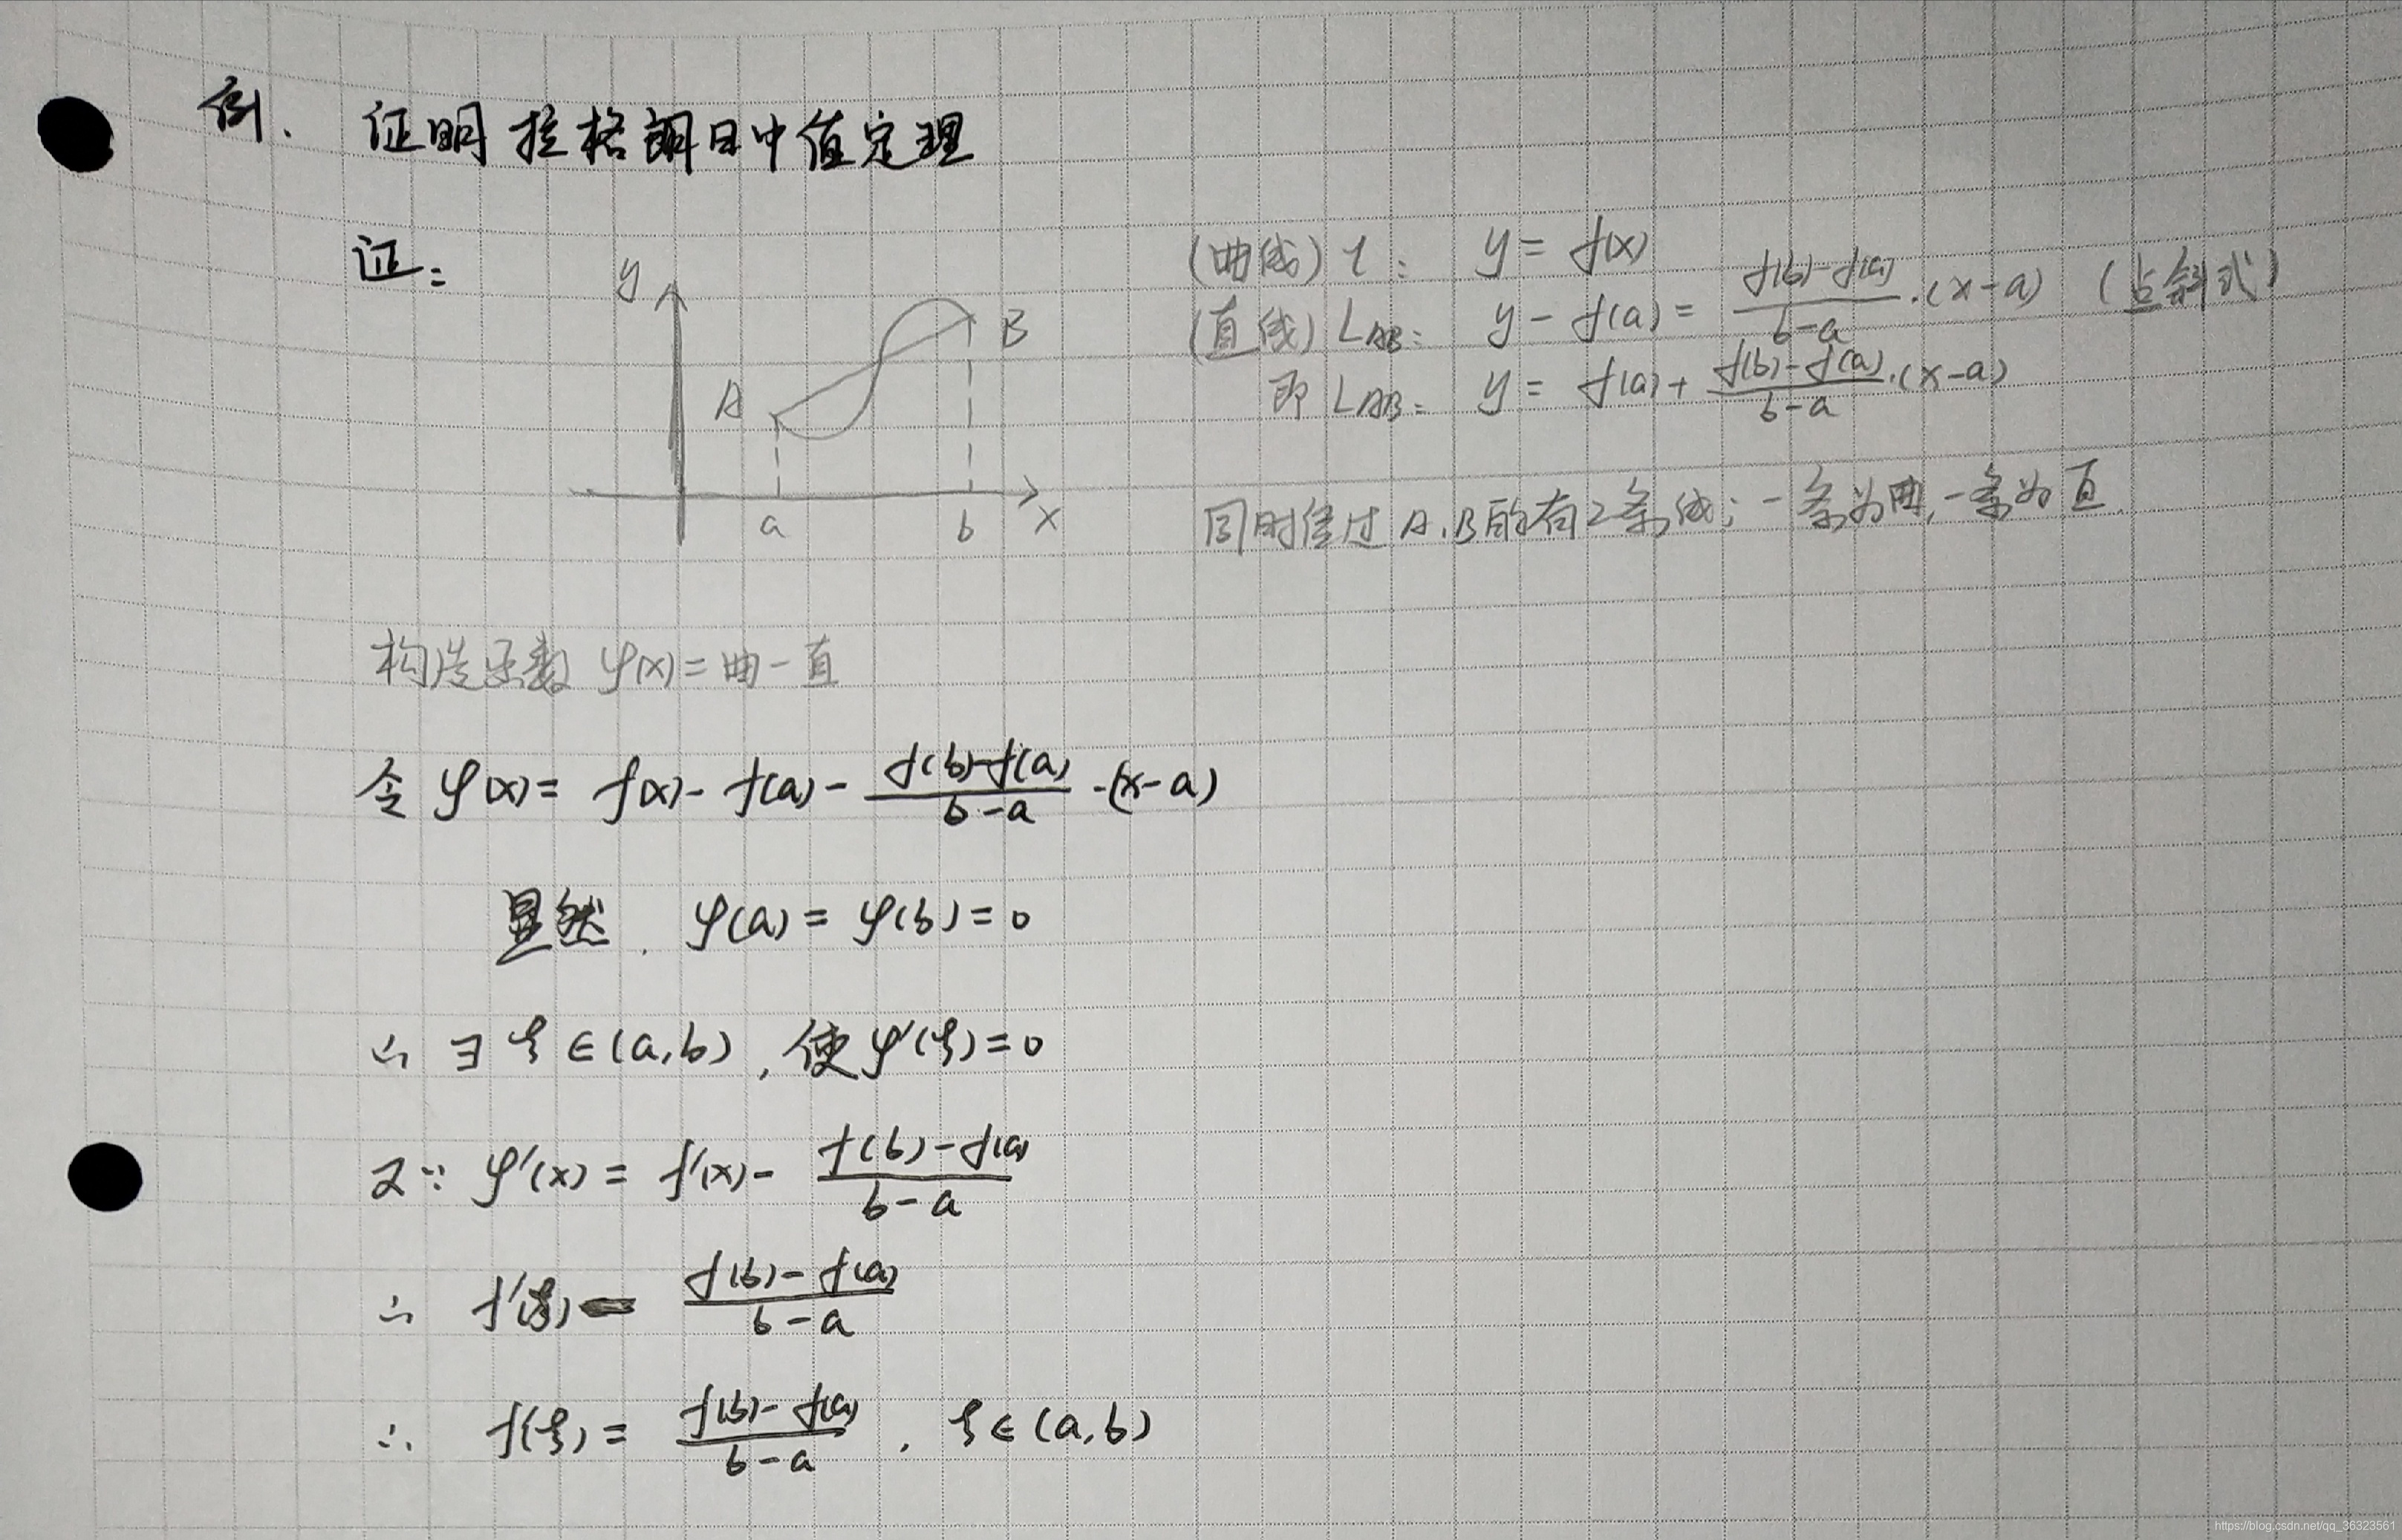 例. 证明拉格朗日中值定理
证:
y
A
B
a
b
x
(曲线) l: y = f(x)
(直线) L_AB: y - f(a) = \frac{f(b)-f(a)}{b-a}·(x-a) (点斜式)
即 L_AB: y = f(a) + \frac{f(b)-f(a)}{b-a}·(x-a)
同时经过 A.B 的有2条线; 一条为曲, 一条为直.
构造函数 φ(x) = 曲 - 直
令 φ(x) = f(x) - f(a) - \frac{f(b)-f(a)}{b-a}·(x-a)
显然. φ(a) = φ(b) = 0
∴ ∃ ξ ∈ (a,b), 使 φ'(ξ) = 0
又∵ φ'(x) = f'(x) - \frac{f(b)-f(a)}{b-a}
∴ f'(ξ) - \frac{f(b)-f(a)}{b-a}
∴ f(ξ) = \frac{f(b)-f(a)}{b-a}, ξ ∈ (a,b)
https://blog.csdn.net/qq_36323561